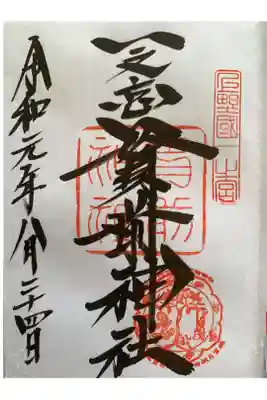 上野國一之宮
一之宮貫前神社
令和元年八月二十四日